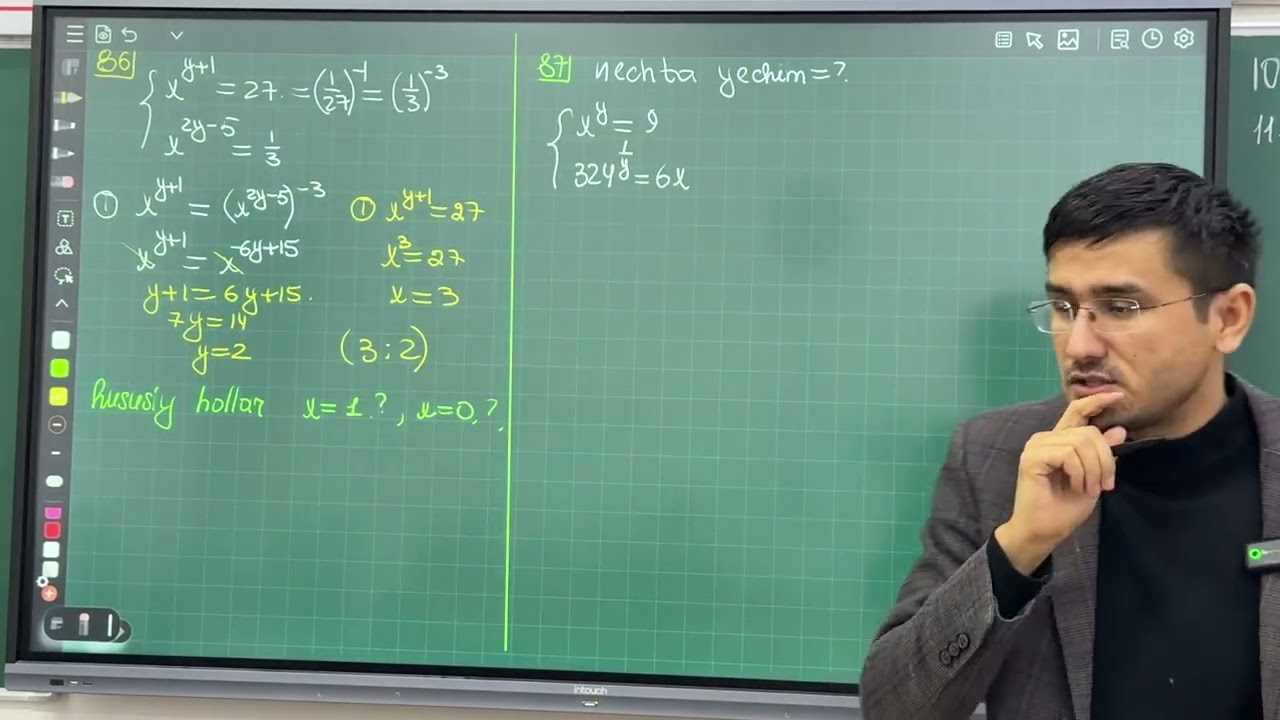 86
{ x^{y+1} = 27. = (1/27)^{-1} = (1/3)^{-3}
x^{2y-5} = 1/3
① x^{y+1} = (x^{2y-5})^{-3}
x^{y+1} = x^{-6y+15}
y+1 = 6y+15.
7y = 14
y=2
① x^{y+1} = 27
x^3 = 27
x = 3
(3 ; 2)
hususiy hollar x=1.?, x=0,?,
87 nechta yechim=?.
{ x^y = 9
324^{1/y} = 6x
10
11
intouch